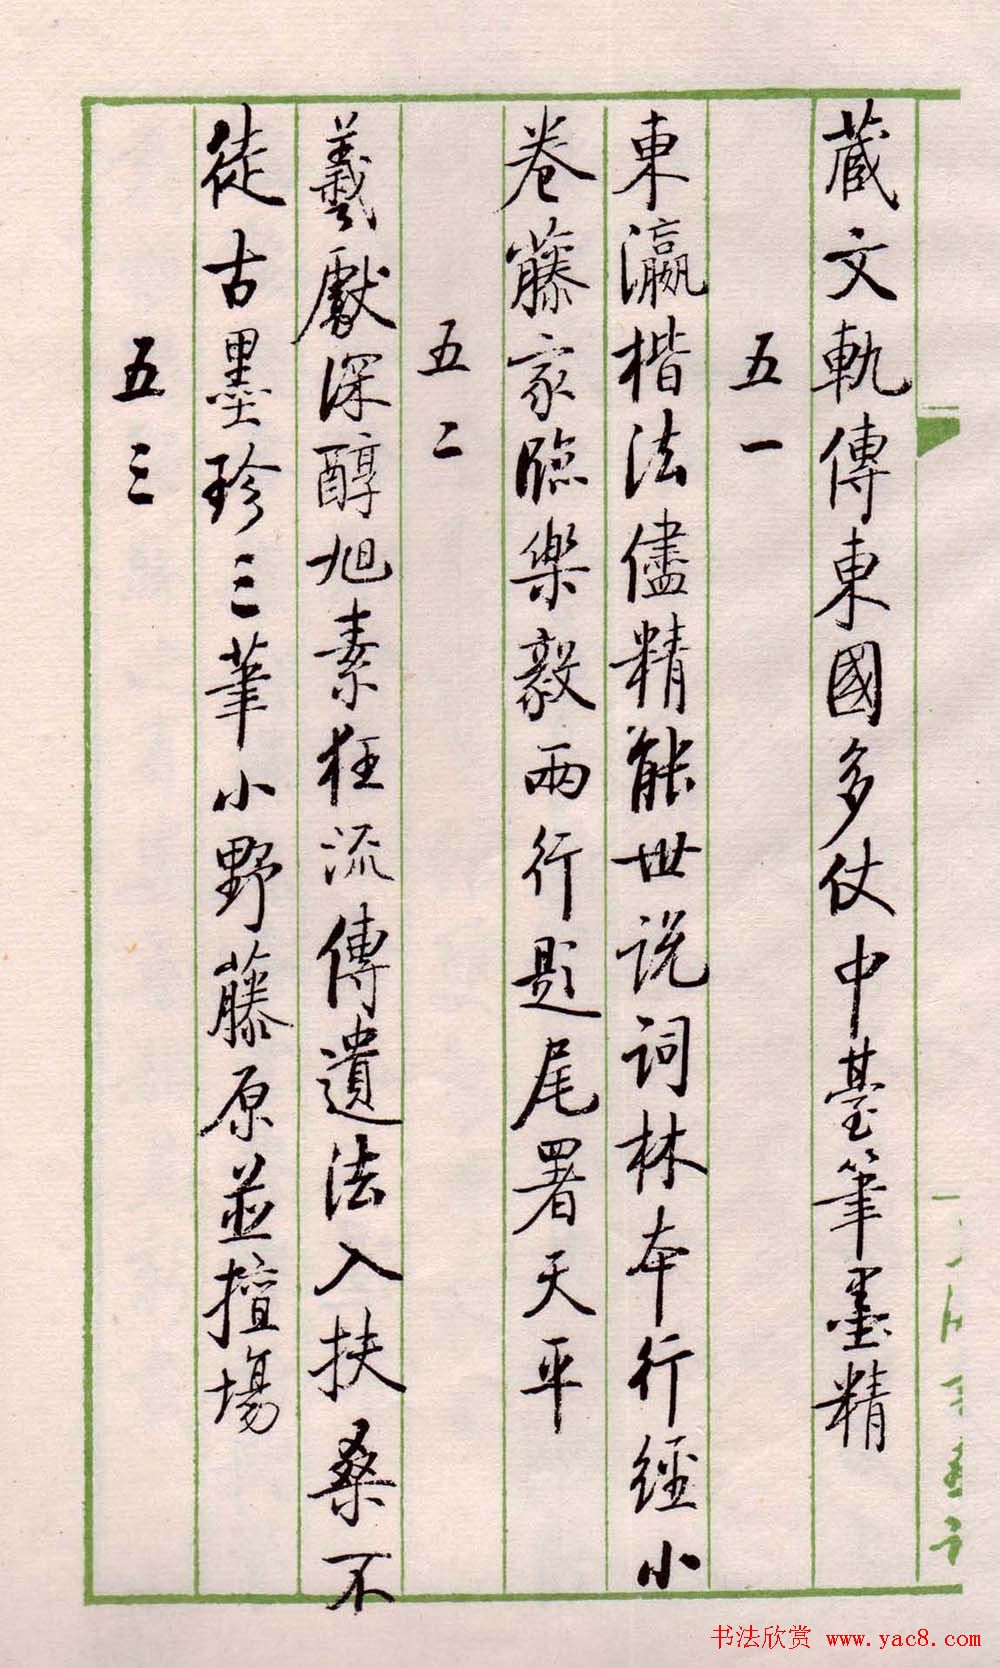 蔵文軌傳東國多仗中臺筆墨精
五一
東瀛楷法儘精能世说词林本行經小
卷藤家臨樂毅兩行题尾署天平
五二
羲獻深醇旭素狂流傳遺法入扶桑不
徒古墨珍三筆小野藤原並擅場
五三
书法欣赏 www.yac8.com